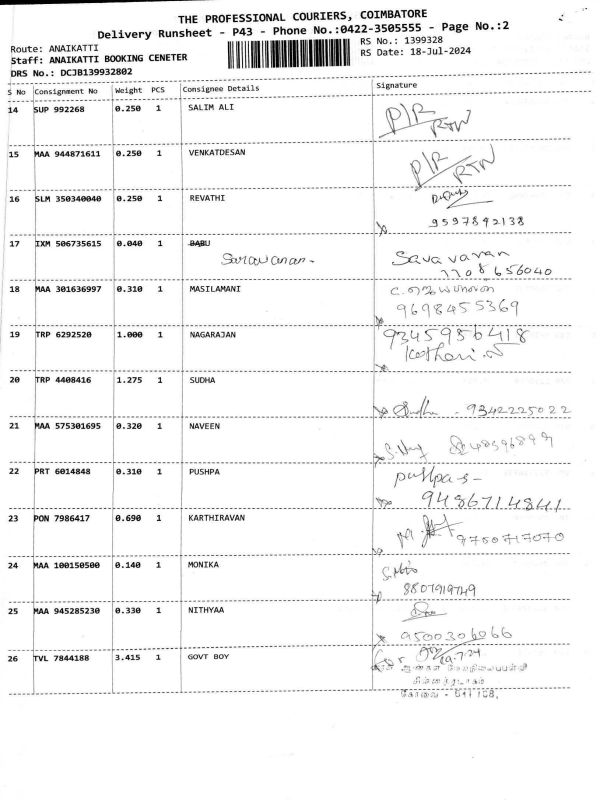 THE PROFESSIONAL COURIERS, COIMBATORE
Delivery Runsheet - P43 - Phone No.:0422-3505555 - Page No.:2
Route: ANAIKATTI
RS No.: 1399328
Staff: ANAIKATTI BOOKING CENETER
RS Date: 18-Jul-2024
DRS No.: DCJB139932802
S No Consignment No Weight PCS Consignee Details Signature
14 SUP 992268 0.250 1 SALIM ALI
P/R RTN
15 MAA 944871611 0.250 1 VENKATDESAN
P/R RTN
16 SLM 350340040 0.250 1 REVATHI
9597892138
17 IXM 506735615 0.040 1 BABU
Saravanan- Savavanan
7708656040
18 MAA 301636997 0.310 1 MASILAMANI
9698455369
19 TRP 6292520 1.000 1 NAGARAJAN 9345956418
Kothari.N
20 TRP 4408416 1.275 1 SUDHA
Sudha - 9342225022
21 MAA 575301695 0.320 1 NAVEEN
22 PRT 6014848 0.310 1 PUSHPA pushpa-s-
9486714841
23 PON 7986417 0.690 1 KARTHIRAVAN
9750717070
24 MAA 100150500 0.140 1 MONIKA
8807919749
25 MAA 945285230 0.330 1 NITHYAA
9500306066
26 TVL 7844188 3.415 1 GOVT BOY
For 19-7-24